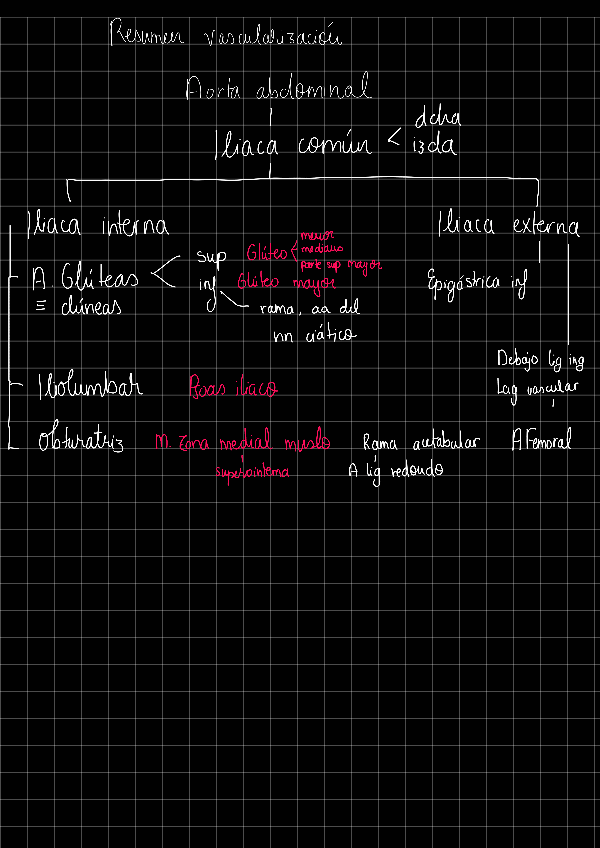 Resumen vascularización
Aorta abdominal
Iliaca común < dcha
izda
Iliaca interna
Iliaca externa
A. Glúteas
≡ clúneas
sup
Glúteo
menor
mediano
parte sup mayor
inf
Glúteo mayor
rama, aa del
nn ciático
Epigástrica inf
Debajo lig ing
Lag vascular
A Femoral
Iliolumbar
Psoas iliaco
Obturatriz
M. Zona medial muslo
superointerna
Rama acetabular
A lig redondo